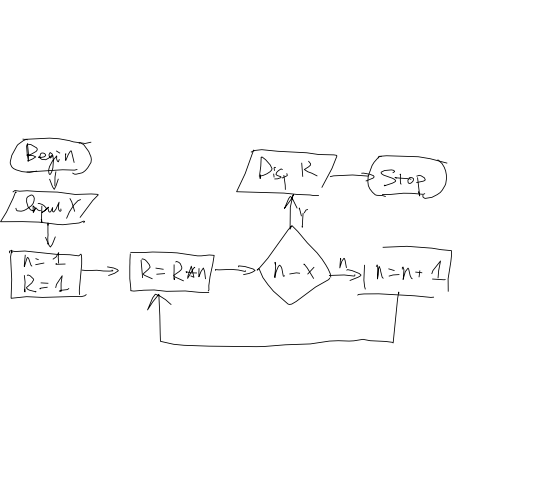 Begin
Input X
n = 1
R = 1
R = R*n
n - x
Y
Disp R
Stop
n
n = n + 1